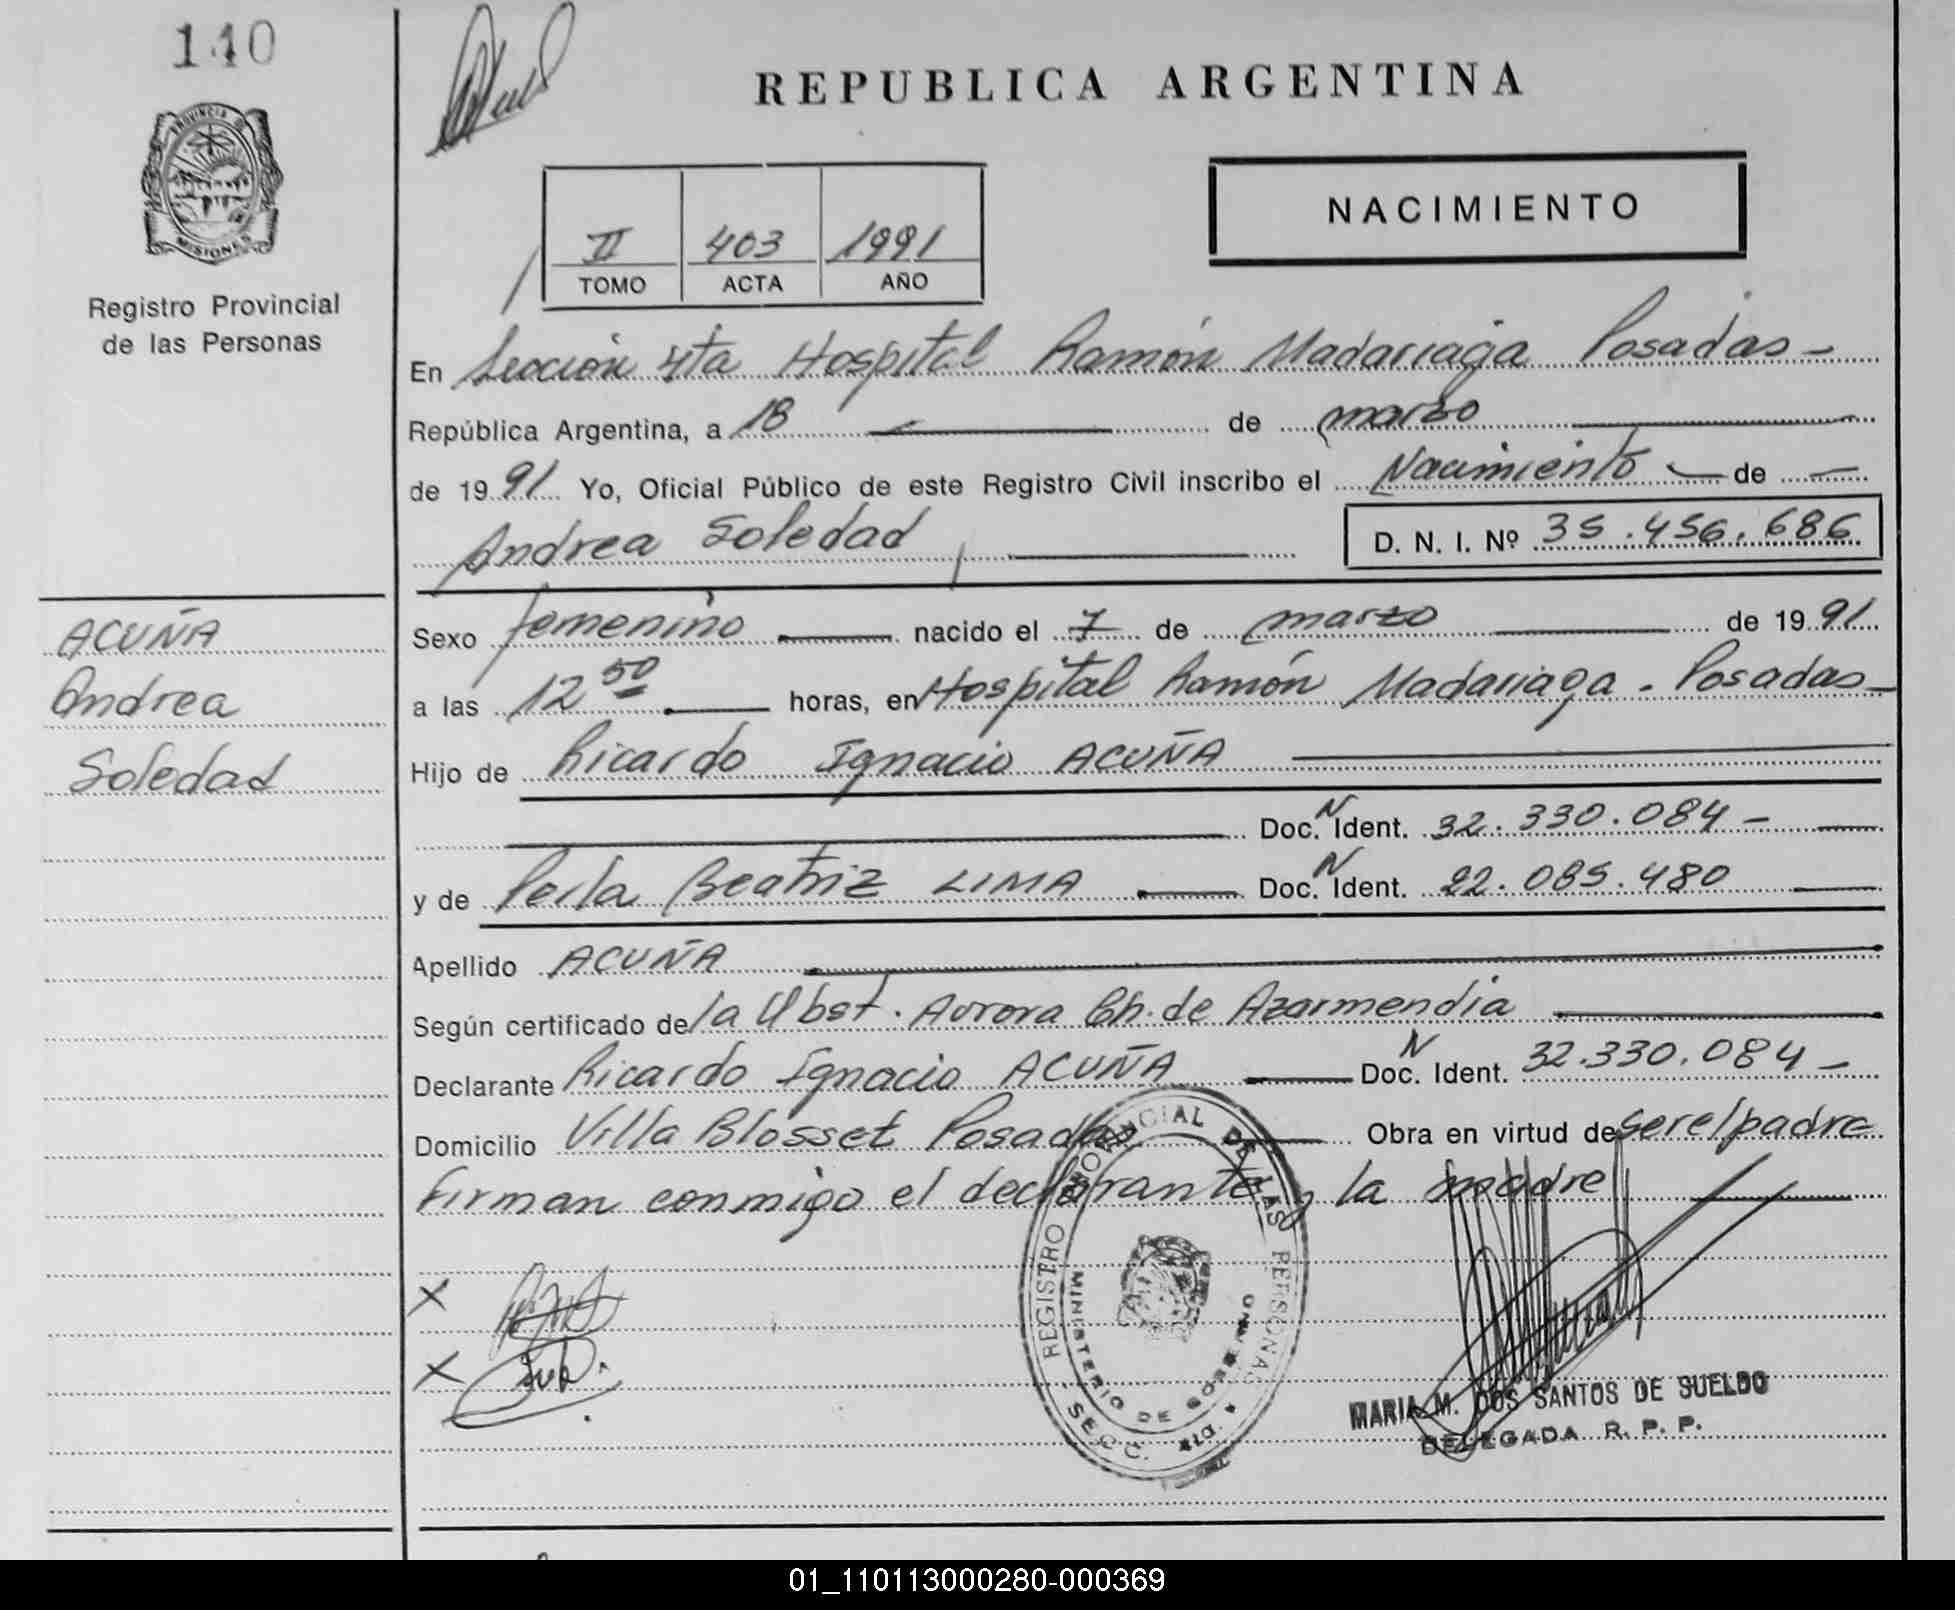 140
REPUBLICA ARGENTINA
PROVINCIA DE
MISIONES
NACIMIENTO
II 403 1991
TOMO ACTA AÑO
Registro Provincial
de las Personas
En Sección 4ta Hospital Ramón Madariaga Posadas -
República Argentina, a 18 de marzo
de 1991 Yo, Oficial Público de este Registro Civil inscribo el Nacimiento de
Andrea Soledad D. N. I. Nº 35.456.686
ACUÑA
Andrea
Soledad
Sexo femenino nacido el 7 de marzo de 1991
a las 12 50 horas, en Hospital Ramón Madariaga - Posadas -
Hijo de Ricardo Ignacio ACUÑA
Doc. N Ident. 32.330.084 -
y de Perla Beatriz LIMA Doc. N Ident. 22.085.480
Apellido ACUÑA
Según certificado de la Obst. Aurora Ch. de Azarmendia
Declarante Ricardo Ignacio ACUÑA Doc. N Ident. 32.330.084 -
Domicilio Villa Blosset Posadas Obra en virtud de ser el padre
Firman conmigo el declarante y la madre
X
X
REGISTRO PROVINCIAL DE LAS PERSONAS
MINISTERIO DE GOBIERNO
SECC. 4ta
MARIA M. DOS SANTOS DE SUELDO
DELEGADA R. P. P.
01_110113000280-000369